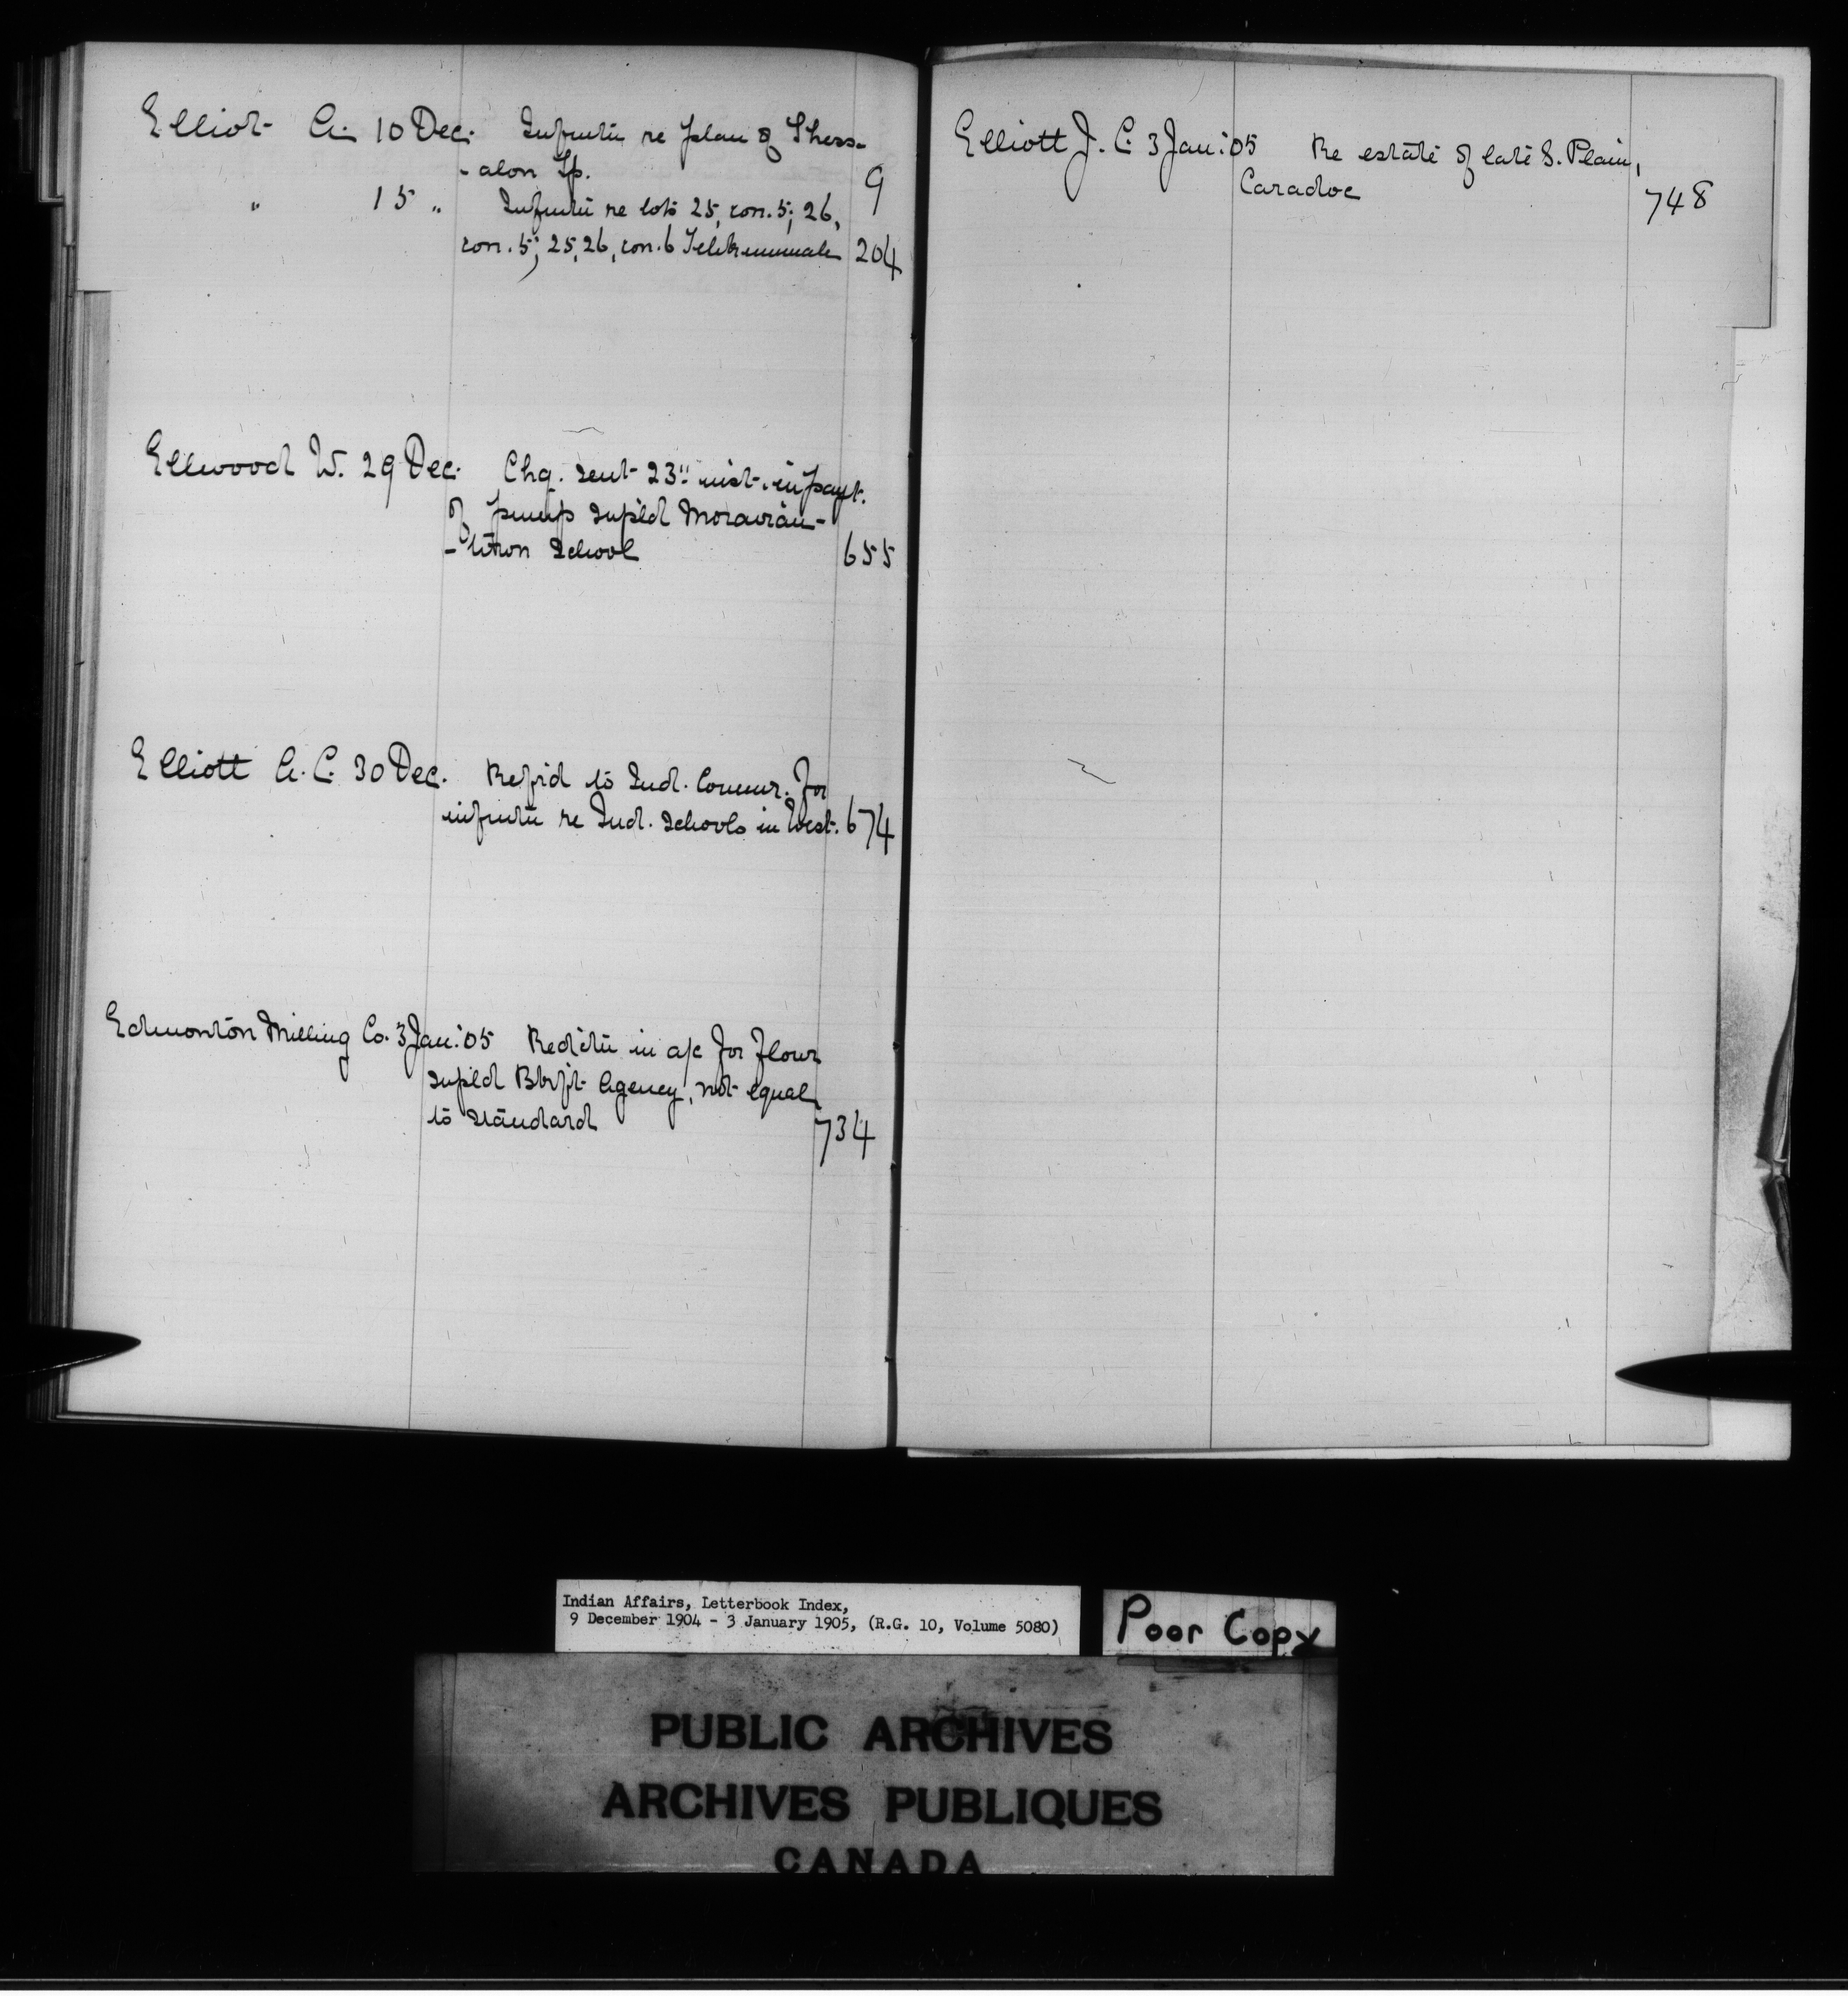 Elliot A. 10 Dec. Infmtn re plan of Thess-
-alon Tp. 9
" 15 " Infmtn re lots 25, con. 5; 26,
con. 5; 25, 26, con. 6 Tehkummah 204
Ellwood W. 29 Dec. Chq. sent 23" inst. in payt.
of pump supld Moravian-
-town School 655
Elliott A. C. 30 Dec. Refrd to Ind. Commr. for
infmtn re Ind. Schools in West. 674
Edmonton Milling Co. 3 Jan: '05 Redctn in a/c for flour
supld Bkft Agency, not equal
to standard 734
Elliott J. C. 3 Jan: '05 Re estate of late S. Plain,
Caradoc 748
Indian Affairs, Letterbook Index,
9 December 1904 - 3 January 1905, (R.G. 10, Volume 5080)
Poor Copy
PUBLIC ARCHIVES
ARCHIVES PUBLIQUES
CANADA